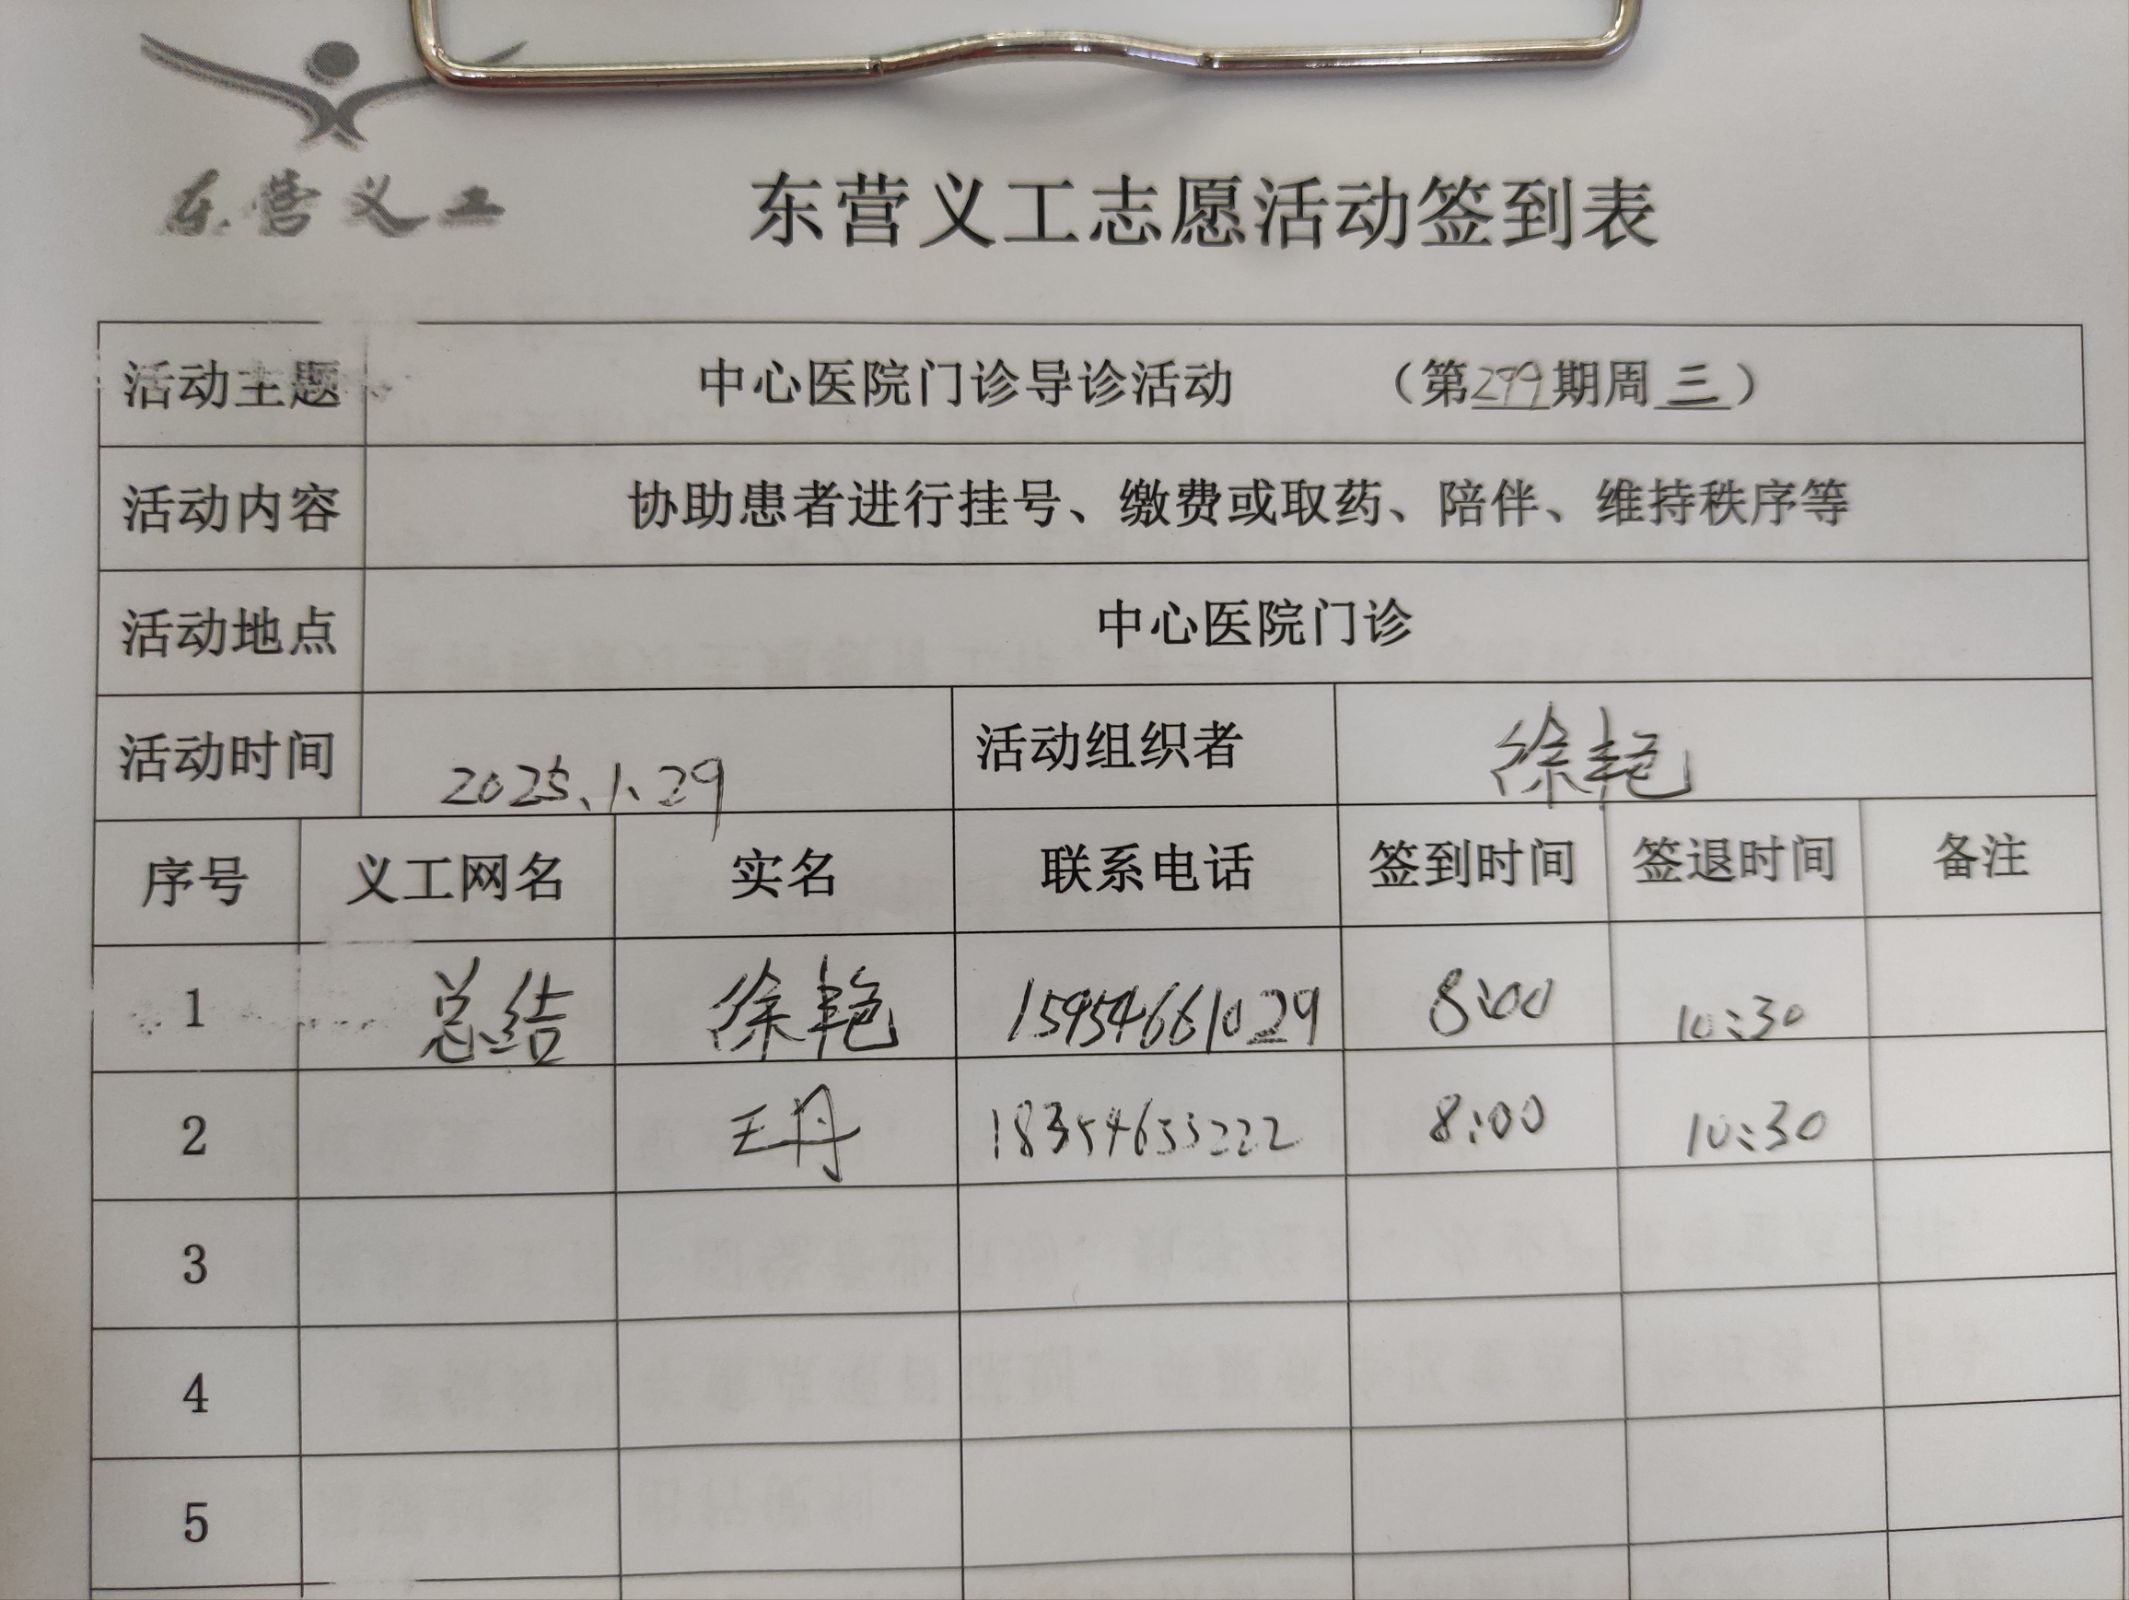 东营义工
东营义工志愿活动签到表
活动主题 中心医院门诊导诊活动 （第299期周三）
活动内容 协助患者进行挂号、缴费或取药、陪伴、维持秩序等
活动地点 中心医院门诊
活动时间 2025.1.29 活动组织者 徐艳
序号 义工网名 实名 联系电话 签到时间 签退时间 备注
1 总结 徐艳 15954661029 8:00 10:30
2 王丹 18354653222 8:00 10:30
3
4
5